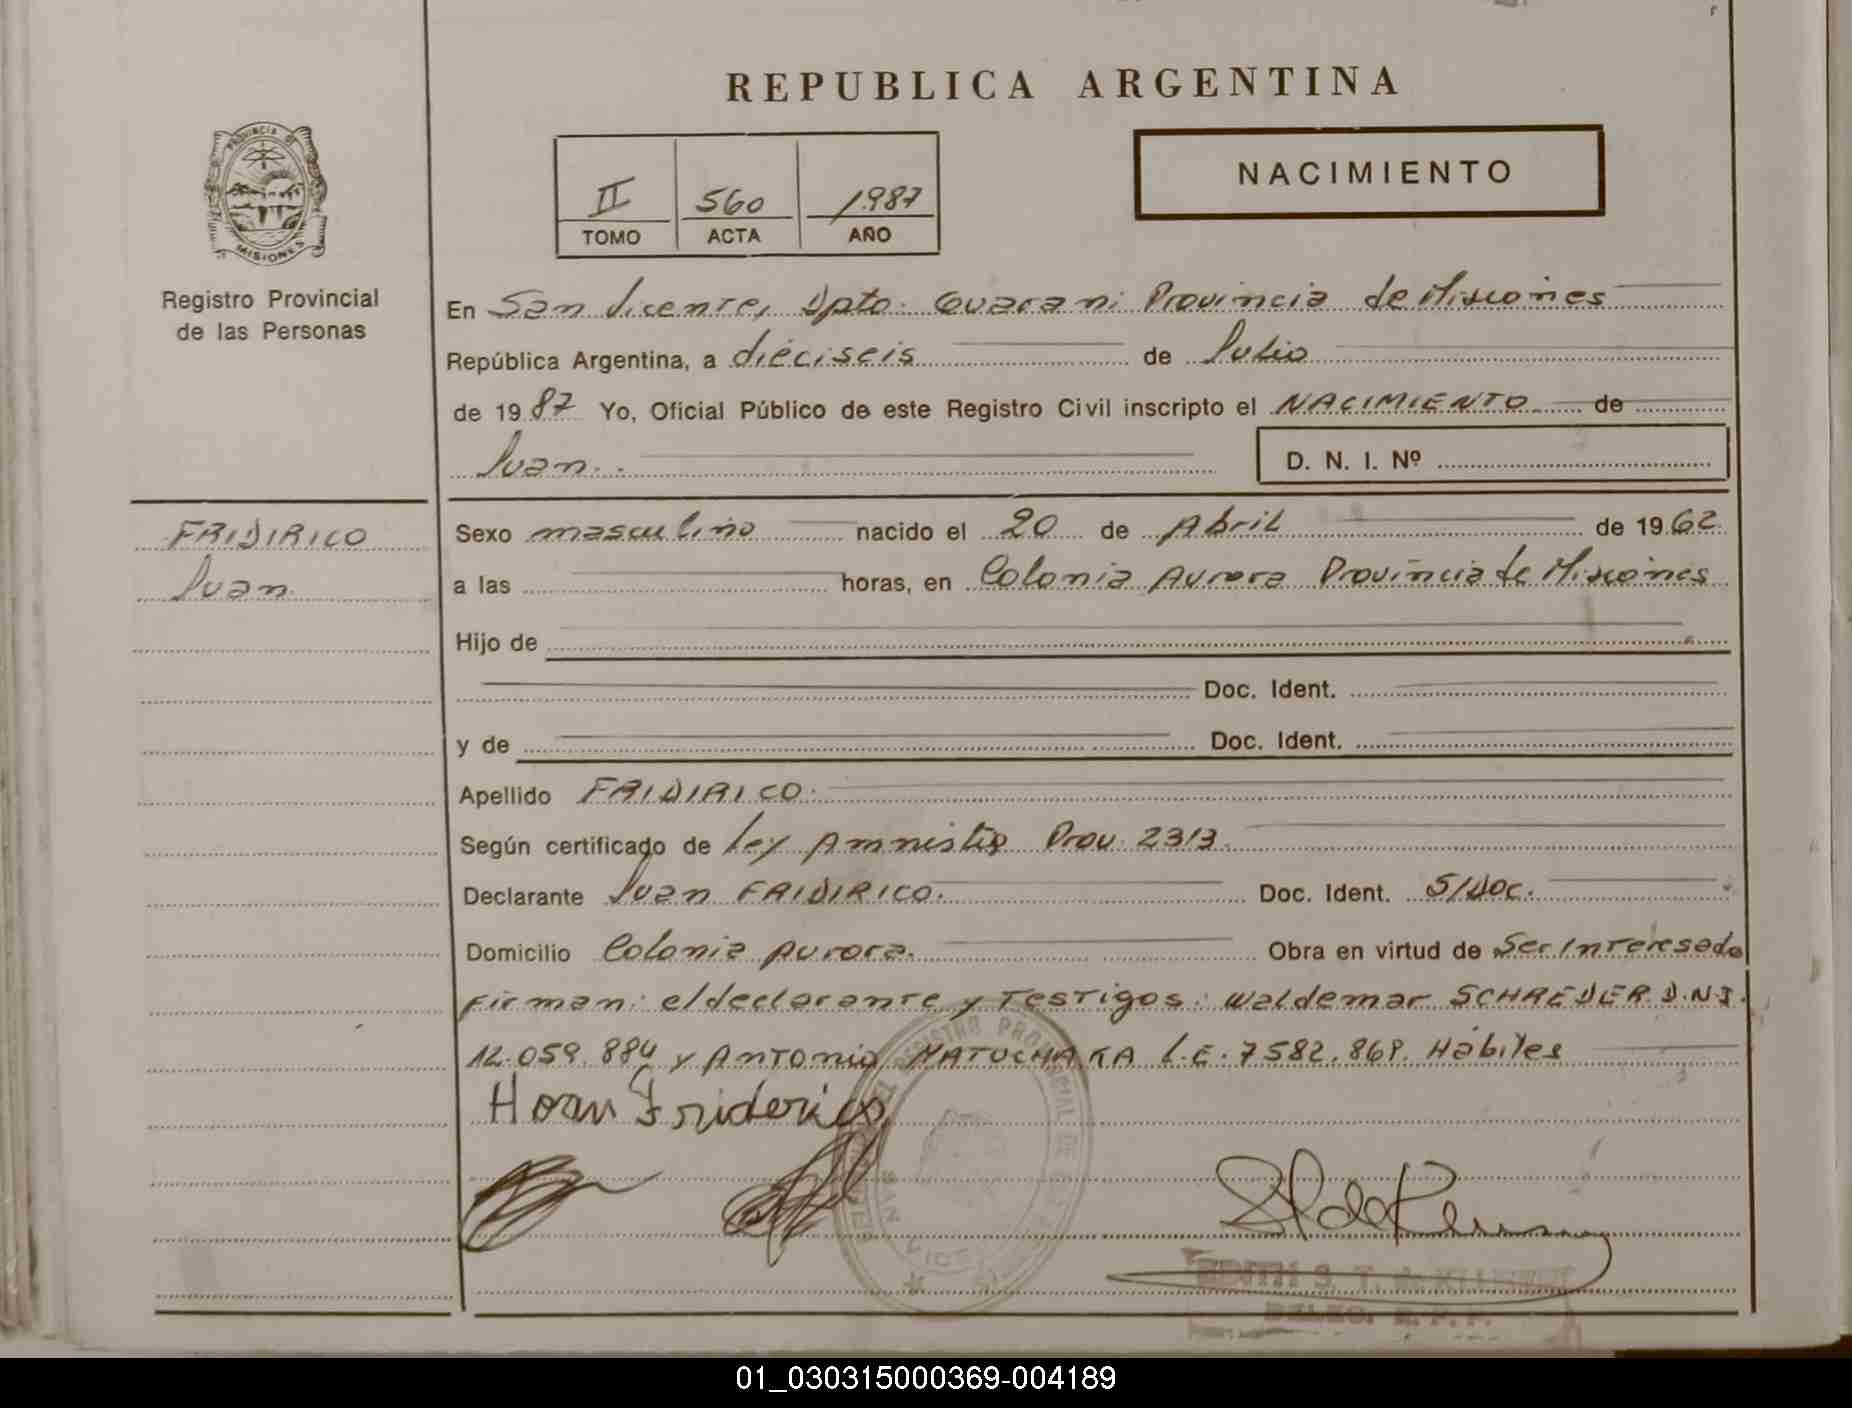 REPUBLICA ARGENTINA
PROVINCIA DE
MISIONES
Registro Provincial
de las Personas
II 560 1987
TOMO ACTA AÑO
NACIMIENTO
En San Vicente, Dpto. Guarani Provincia de Misiones
República Argentina, a dieciseis de Julio
de 1987 Yo, Oficial Público de este Registro Civil inscripto el NACIMIENTO de
Juan.
D. N. I. Nº
FRIDIRICO
Juan
Sexo masculino nacido el 20 de Abril de 1962
a las horas, en Colonia Aurora Provincia de Misiones
Hijo de
Doc. Ident.
y de Doc. Ident.
Apellido FRIDIRICO.
Según certificado de Ley Amnistia Prov. 2313.
Declarante Juan FRIDIRICO. Doc. Ident. S/DOC.
Domicilio Colonia Aurora. Obra en virtud de Ser Interesado
Firman: el declarante y Testigos: Waldemar SCHREDER D.N.I.
12.059.884 y Antonio MATUCHAKA L.E. 7582.868. Hábiles
Hoan Friderico
REGISTRO PROVINCIAL DE
SAN VICE
EDITH S. T. de
DELEG. R. P. P.
01_030315000369-004189